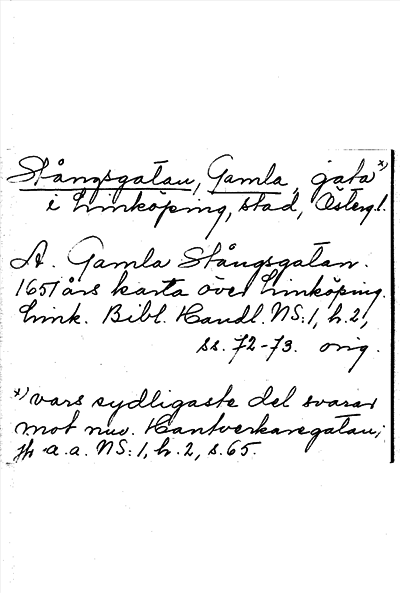 Stångsgatan, Gamla, gata x)
i Linköping, stad, Östergl.
A. Gamla Stångsgatan.
1651 års karta över Linköping.
Link. Bibl. Handl. NS:1, h.2,
ss. 72-73. orig.
x) vars sydligaste del svarar
mot nuv. Hantverkaregatan;
jfr a.a. NS:1, h.2, s.65.